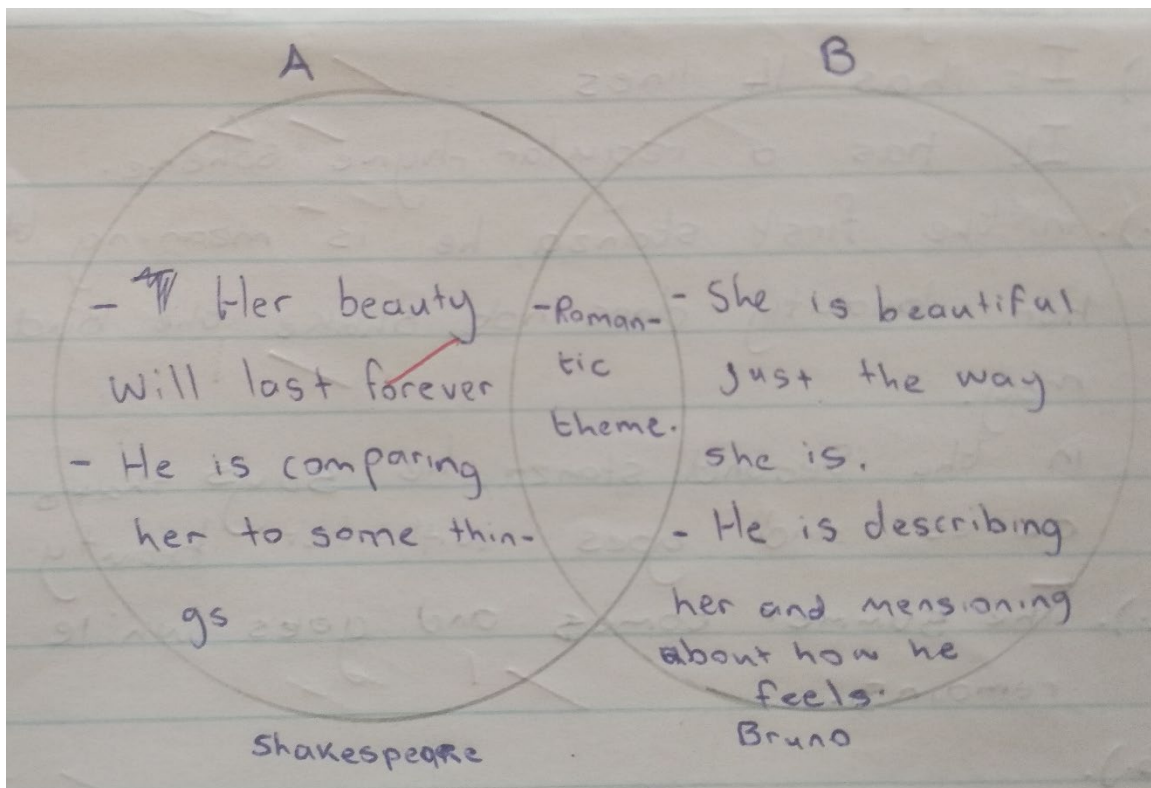 A
B
- Her beauty
will last forever
- He is comparing
her to some thin-
gs
Shakespeare
-Roman-
tic
theme.
- She is beautiful
just the way
she is.
- He is describing
her and mensioning
about how he
feels.
Bruno